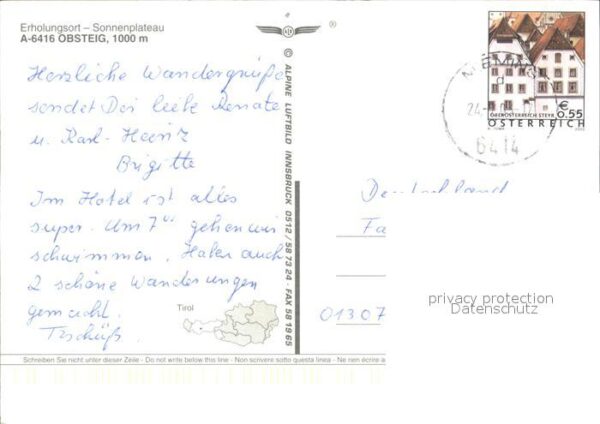 Erholungsort – Sonnenplateau
A-6416 OBSTEIG, 1000 m
Herzliche Wandergrüße
sendet Dir liebe Renate
u. Karl-Heinz
Brigitte
Im Hotel ist alles
super. Um 7⁰⁰ gehen wir
schwimmen. Haben auch
2 schöne Wanderungen
gemacht.
Tschüß.
Tirol
Schreiben Sie nicht unter dieser Zeile - Do not write below this line - Non scrivere sotto questa linea - Ne rien écrire a
®
© ALPINE LUFTBILD INNSBRUCK 0512 / 58 73 24 - FAX 58 19 65
6414
€ 0.55
OBERÖSTERREICH STEYR
ÖSTERREICH
Deutschland
Fa
01307
privacy protection
Datenschutz